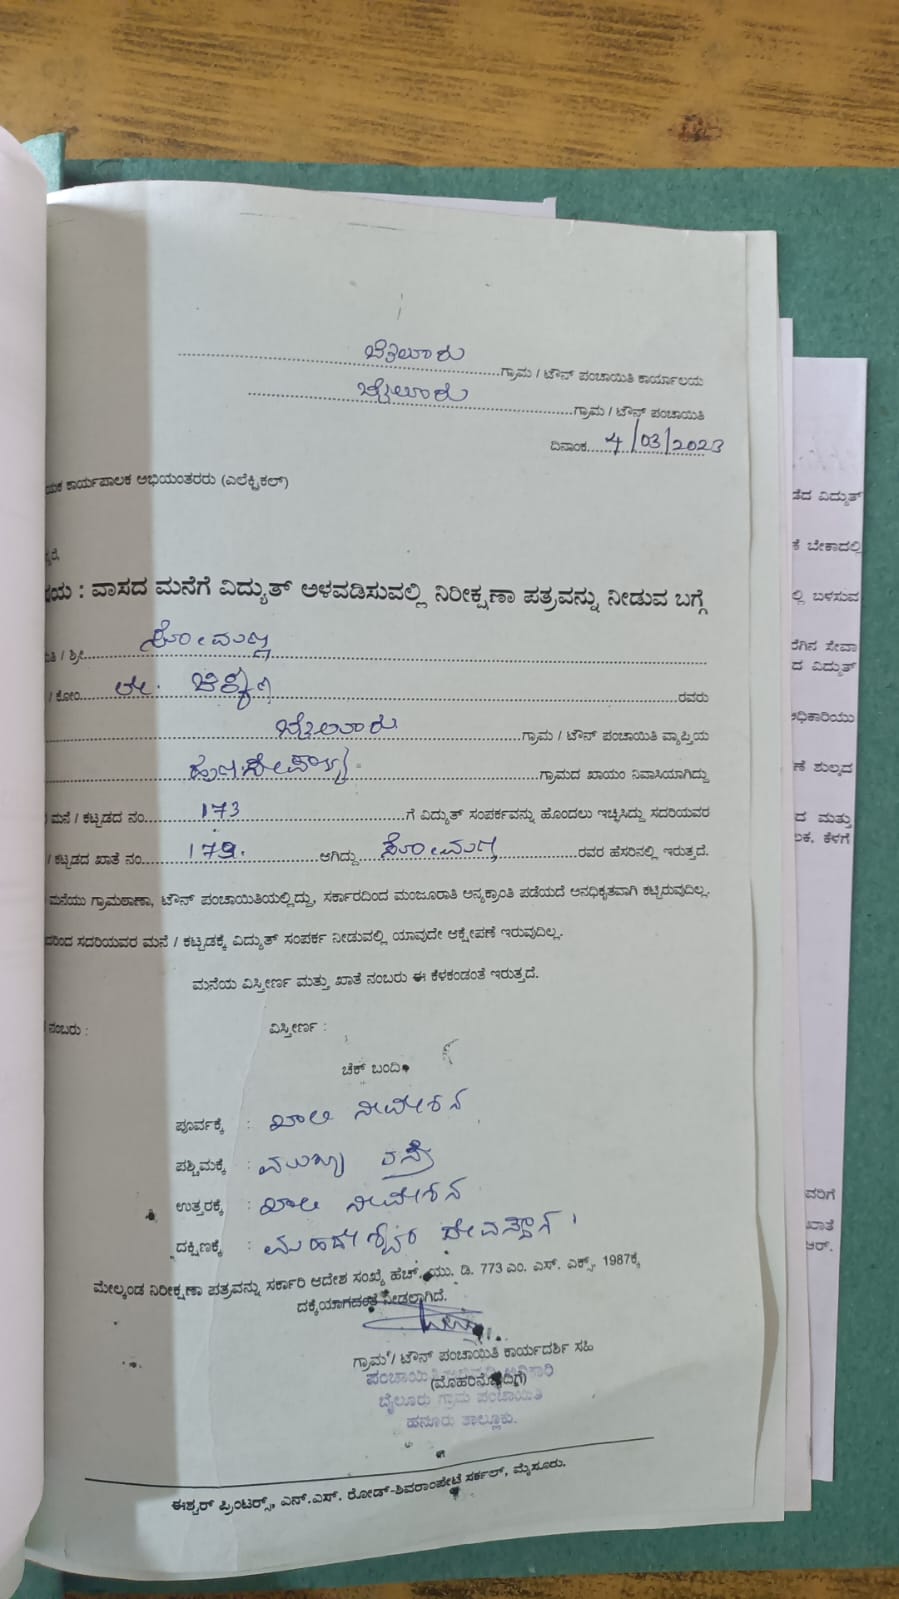 ಬೈಲೂರು
ಗ್ರಾಮ / ಟೌನ್ ಪಂಚಾಯಿತಿ ಕಾರ್ಯಾಲಯ
ಬೈಲೂರು
ಗ್ರಾಮ / ಟೌನ್ ಪಂಚಾಯಿತಿ
ದಿನಾಂಕ 4/03/2023
ಯಕ ಕಾರ್ಯಪಾಲಕ ಅಭಿಯಂತರರು (ಎಲೆಕ್ಟ್ರಿಕಲ್)
ಯ : ವಾಸದ ಮನೆಗೆ ವಿದ್ಯುತ್ ಅಳವಡಿಸುವಲ್ಲಿ ನಿರೀಕ್ಷಣಾ ಪತ್ರವನ್ನು ನೀಡುವ ಬಗ್ಗೆ
ತಿ / ಶ್ರೀ ಸೋಮಣ್ಣ
/ ಕೋಂ ಲೇ. ರವರು
ಬೈಲೂರು ಗ್ರಾಮ / ಟೌನ್ ಪಂಚಾಯಿತಿ ವ್ಯಾಪ್ತಿಯ
ಹುಣಸೇಪಾಳ್ಯ ಗ್ರಾಮದ ಖಾಯಂ ನಿವಾಸಿಯಾಗಿದ್ದು
ಮನೆ / ಕಟ್ಟಡದ ನಂ 173 ಗೆ ವಿದ್ಯುತ್ ಸಂಪರ್ಕವನ್ನು ಹೊಂದಲು ಇಚ್ಛಿಸಿದ್ದು ಸದರಿಯವರ
/ ಕಟ್ಟಡದ ಖಾತೆ ನಂ ಆಗಿದ್ದು ಸೋಮಣ್ಣ ರವರ ಹೆಸರಿನಲ್ಲಿ ಇರುತ್ತದೆ.
ಮನೆಯು ಗ್ರಾಮಠಾಣಾ, ಟೌನ್ ಪಂಚಾಯಿತಿಯಲ್ಲಿದ್ದು, ಸರ್ಕಾರದಿಂದ ಮಂಜೂರಾತಿ ಅನ್ಯಕ್ರಾಂತಿ ಪಡೆಯದೆ ಅನಧಿಕೃತವಾಗಿ ಕಟ್ಟಿರುವುದಿಲ್ಲ.
ದರಿಂದ ಸದರಿಯವರ ಮನೆ / ಕಟ್ಟಡಕ್ಕೆ ವಿದ್ಯುತ್ ಸಂಪರ್ಕ ನೀಡುವಲ್ಲಿ ಯಾವುದೇ ಆಕ್ಷೇಪಣೆ ಇರುವುದಿಲ್ಲ.
ಮನೆಯ ವಿಸ್ತೀರ್ಣ ಮತ್ತು ಖಾತೆ ನಂಬರು ಈ ಕೆಳಕಂಡಂತೆ ಇರುತ್ತದೆ.
ನಂಬರು : ವಿಸ್ತೀರ್ಣ :
ಚೆಕ್ ಬಂದಿ
ಪೂರ್ವಕ್ಕೆ : ಖಾಲಿ ನಿವೇಶನ
ಪಶ್ಚಿಮಕ್ಕೆ : ಮುಖ್ಯ ರಸ್ತೆ
ಉತ್ತರಕ್ಕೆ : ಖಾಲಿ ನಿವೇಶನ
ದಕ್ಷಿಣಕ್ಕೆ : ಮಹದೇಶ್ವರ ದೇವಸ್ಥಾನ
ಮೇಲ್ಕಂಡ ನಿರೀಕ್ಷಣಾ ಪತ್ರವನ್ನು ಸರ್ಕಾರಿ ಆದೇಶ ಸಂಖ್ಯೆ ಹೆಚ್. ಯು. ಡಿ. 773 ಎಂ. ಎಸ್. ಎಕ್ಸ್. 1987ಕ್ಕೆ
ದಕ್ಕೆಯಾಗದಂತೆ ನೀಡಲಾಗಿದೆ.
ಗ್ರಾಮ / ಟೌನ್ ಪಂಚಾಯಿತಿ ಕಾರ್ಯದರ್ಶಿ ಸಹಿ
(ಮೊಹರಿನೊಂದಿಗೆ)
ಪಂಚಾಯಿತಿ ಅಭಿವೃದ್ಧಿ ಅಧಿಕಾರಿ
ಬೈಲೂರು ಗ್ರಾಮ ಪಂಚಾಯಿತಿ
ಹನೂರು ತಾಲ್ಲೂಕು.
ಈಶ್ವರ್ ಪ್ರಿಂಟರ್ಸ್, ಎನ್.ಎಸ್. ರೋಡ್-ಶಿವರಾಂಪೇಟೆ ಸರ್ಕಲ್, ಮೈಸೂರು.
ಡೆದ ವಿದ್ಯುತ್
ಕೆ ಬೇಕಾದಲ್ಲಿ
ಲ್ಲಿ ಬಳಸುವ
ರೆಗಿನ ಸೇವಾ
ದ ವಿದ್ಯುತ್
ಅಧಿಕಾರಿಯು
ಣೆ ಶುಲ್ಕದ
ದ ಮತ್ತು
ಲಕ, ಕೆಳಗೆ
ವರಿಗೆ
ಖಾತೆ
ಆರ್.